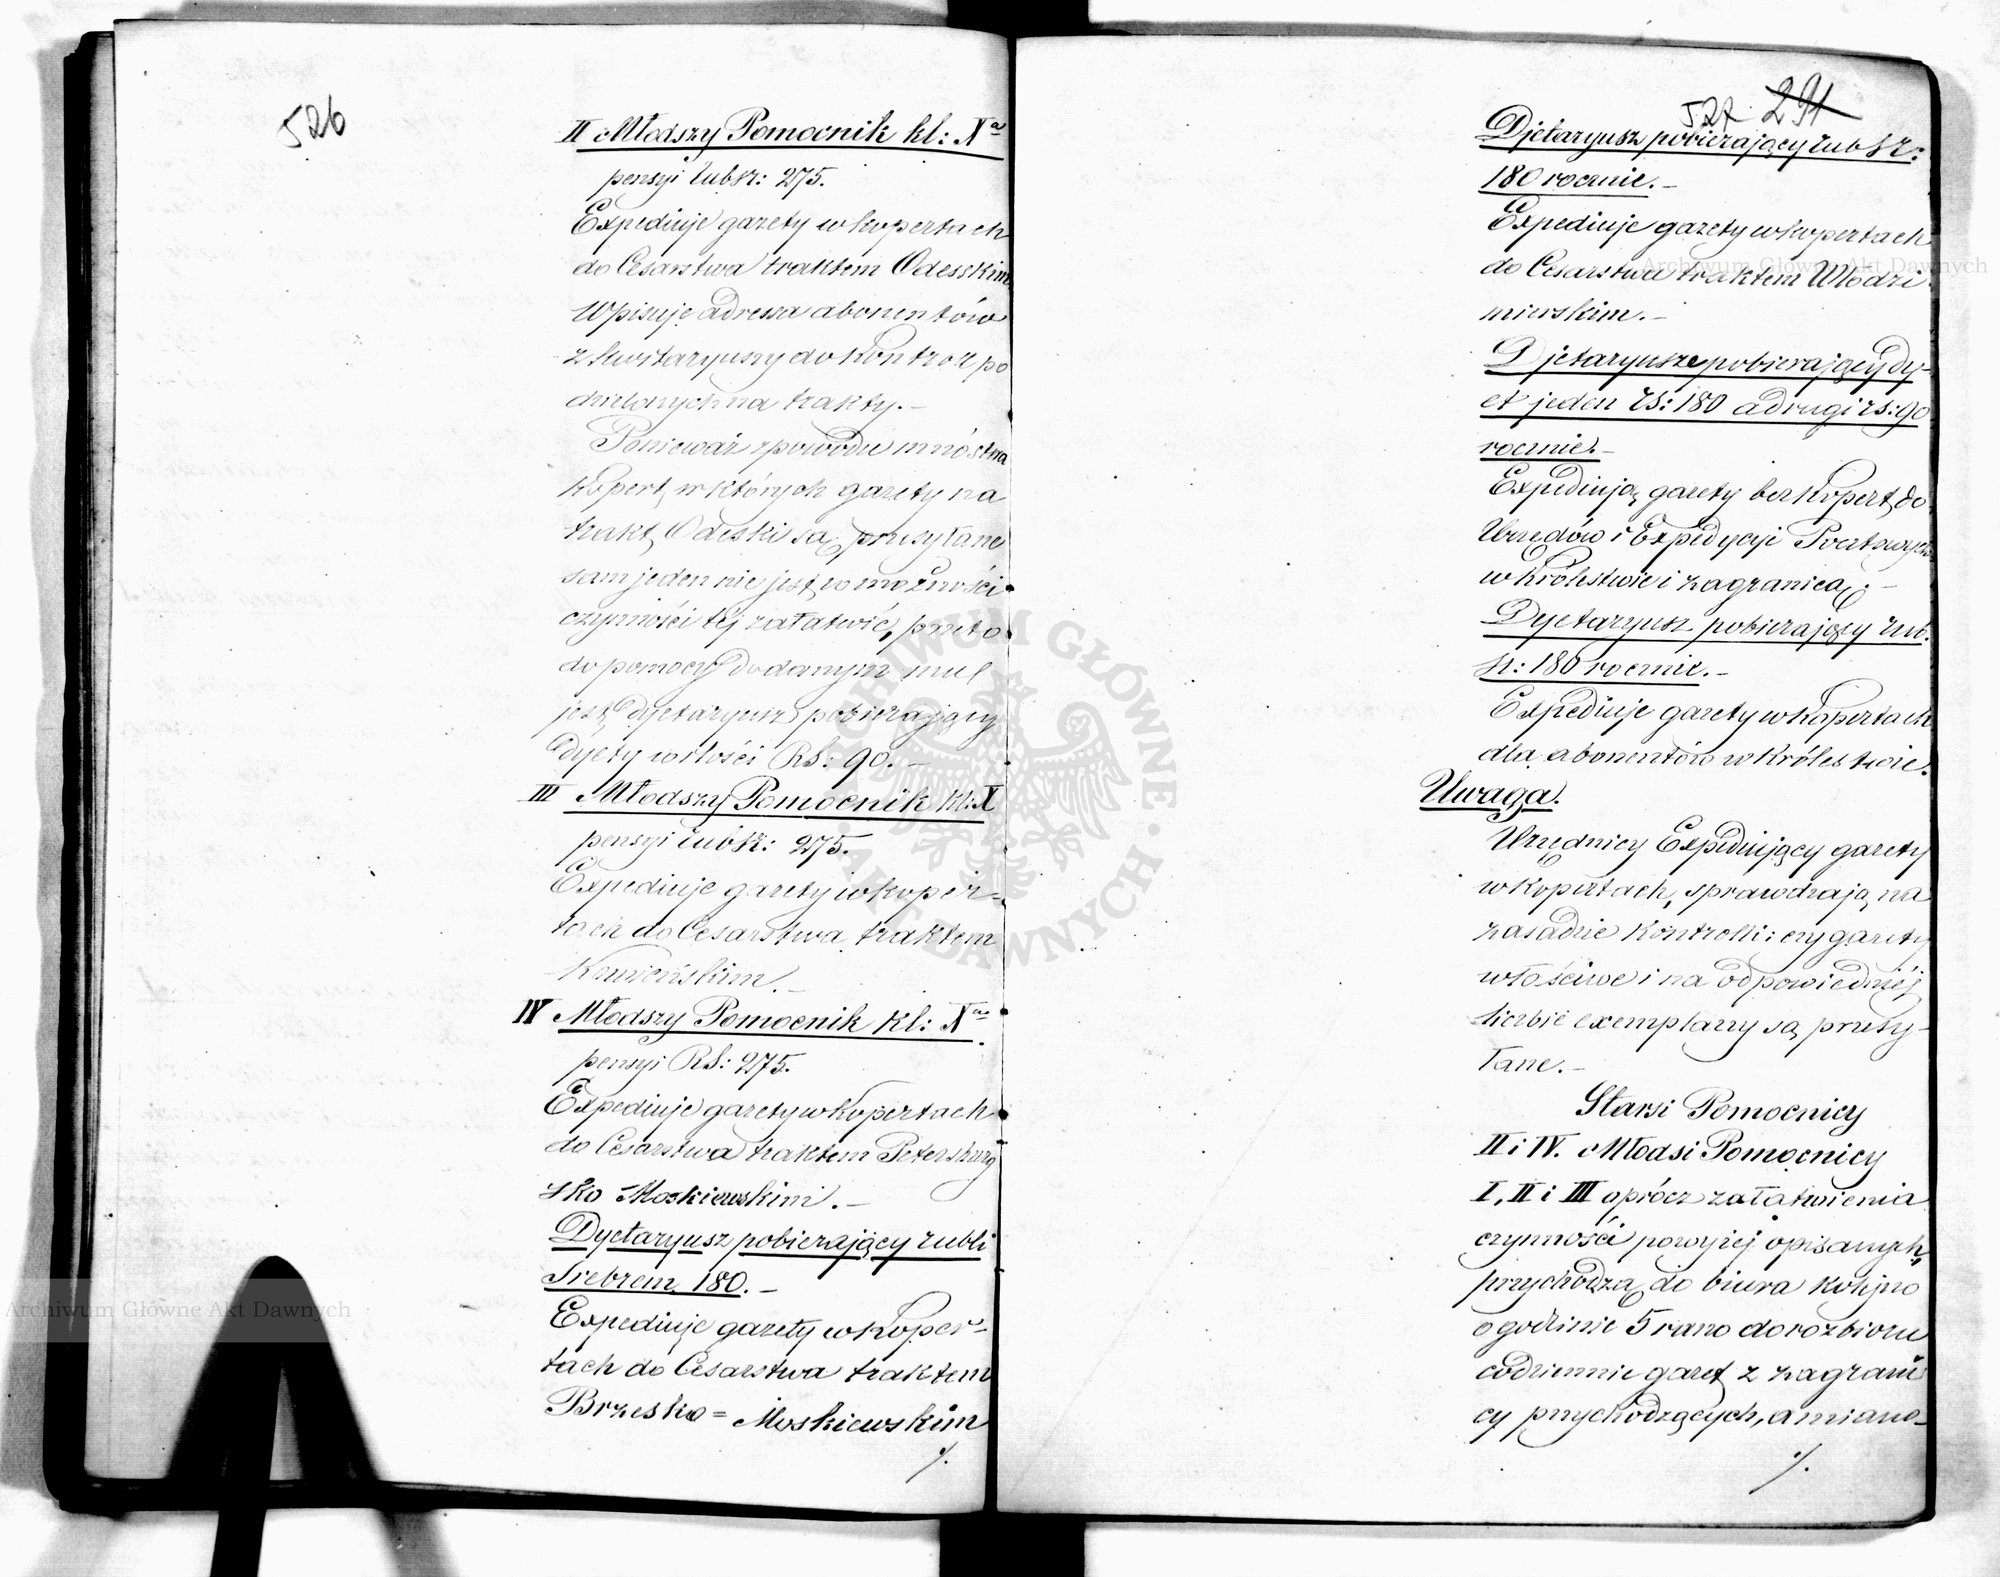 526
II Młodszy Pomocnik kl: Xa
pensyi rubsr: 275.
Expediuje gazety w kopertach
do Cesarstwa traktem Odesskim
Wpisuje adressa abonentów
z kwitaryuszy do kontroz po
dzielonych na trakty.-
Ponieważ z powodu mnóstwa
kopert, w których gazety na
trakt Odeski są przesyłane
sam jeden nie jest w możności
czynności tej załatwić, przeto
do pomocy dodanym mu
jest dyetaryusz pobierający
dyety w ilości RS: 90.-
III Młodszy Pomocnik kl: X
pensyi rubsr: 275.-
Expediuje gazety w koper-
tach do Cesarstwa traktem
IV Młodszy Pomocnik kl: Xa
pensyi RS: 275.
Expediuje gazety w kopertach
do Cesarstwa traktem Petersburg
sko Moskiewskim.-
Dyetaryusz pobierający rubli
Srebrem 180.-
Expediuje gazety w koper-
tach do Cesarstwa traktem
Brzesko=Moskiewskim
./.
527 291
Djetaryusz pobierający rubsr:
180 rocznie.-
Expediuje gazety w kopertach
do Cesarstwa traktem Włodzi
mierskim.-
Djetaryusze pobierający dy-
et jeden rs: 180 a drugi rs: 90
rocznie.-
Expediują gazety bez kopert do
Urzędów i Expedycyi Pocztowych
w Królestwie i zagranicą.-
Dyetaryusz pobierający rub.
sr: 180 rocznie.-
Expediuje gazety w kopertach
dla abonentów w Królestwie.
Uwaga.
Urzędnicy Expediujący gazety
w kopertach, sprawdzają na
zasadzie kontrolli: czy gazety
właściwe i na odpowiedniéj
liczbie exemplarzy są przesy-
łane.-
Starsi Pomocnicy
II i IV. Młodsi Pomocnicy
I, II i III oprócz załatwienia
czynności powyżej opisanych,
przychodzą do biura kolejno
o godzinie 5 rano do rozbioru
codziennie gazet z zagrani
cy przychodzących, a miano-
./.
Archiwum Główne Akt Dawnych
Archiwum Główne Akt Dawnych
ARCHIWUM GŁÓWNE AKT DAWNYCH